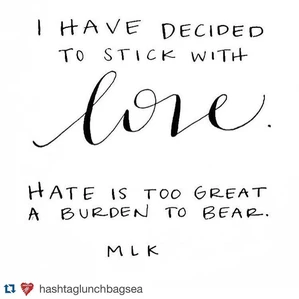 I HAVE DECIDED
TO STICK WITH
love.
HATE IS TOO GREAT
A BURDEN TO BEAR.
MLK
hashtaglunchbagsea